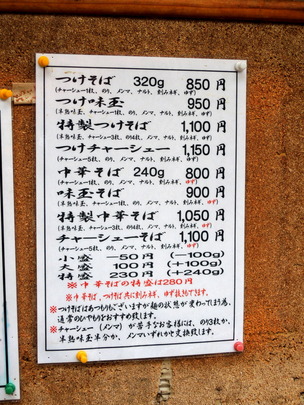 つけそば 320g 850円
(チャーシュー1枚、のり、メンマ、ナルト、刻みネギ、ゆず)
つけ味玉 950円
(半熟味玉、チャーシュー1枚、のり、メンマ、ナルト、刻みネギ、ゆず)
特製つけそば 1,100円
(半熟味玉、チャーシュー3枚、のり4枚、メンマ、ナルト、刻みネギ、ゆず)
つけチャーシュー 1,150円
(チャーシュー5枚、のり、メンマ、ナルト、刻みネギ、ゆず)
中華そば 240g 800円
(チャーシュー1枚、のり、メンマ、ナルト、刻みネギ、ゆず)
味玉そば 900円
(半熟味玉、チャーシュー1枚、のり、メンマ、ナルト、刻みネギ、ゆず)
特製中華そば 1,050円
(半熟味玉、チャーシュー3枚、のり4枚、メンマ、ナルト、刻みネギ、ゆず)
チャーシューそば 1,100円
(チャーシュー5枚、のり、メンマ、ナルト、刻みネギ、ゆず)
小盛 −50円 (−100g)
大盛 100円 (+100g)
特盛 230円 (+240g)
※中華そばの特盛は280円
※中華そば、つけそば共に刻みネギ、ゆず抜きもできます。
※つけそばはあつもりもございますが麺の状態が変わってしまう為、
通常のひやもりをおすすめ致します。
※チャーシュー(メンマ)が苦手なお客様には、のり3枚か、
半熟味玉半分か、メンマいずれかと交換致します。